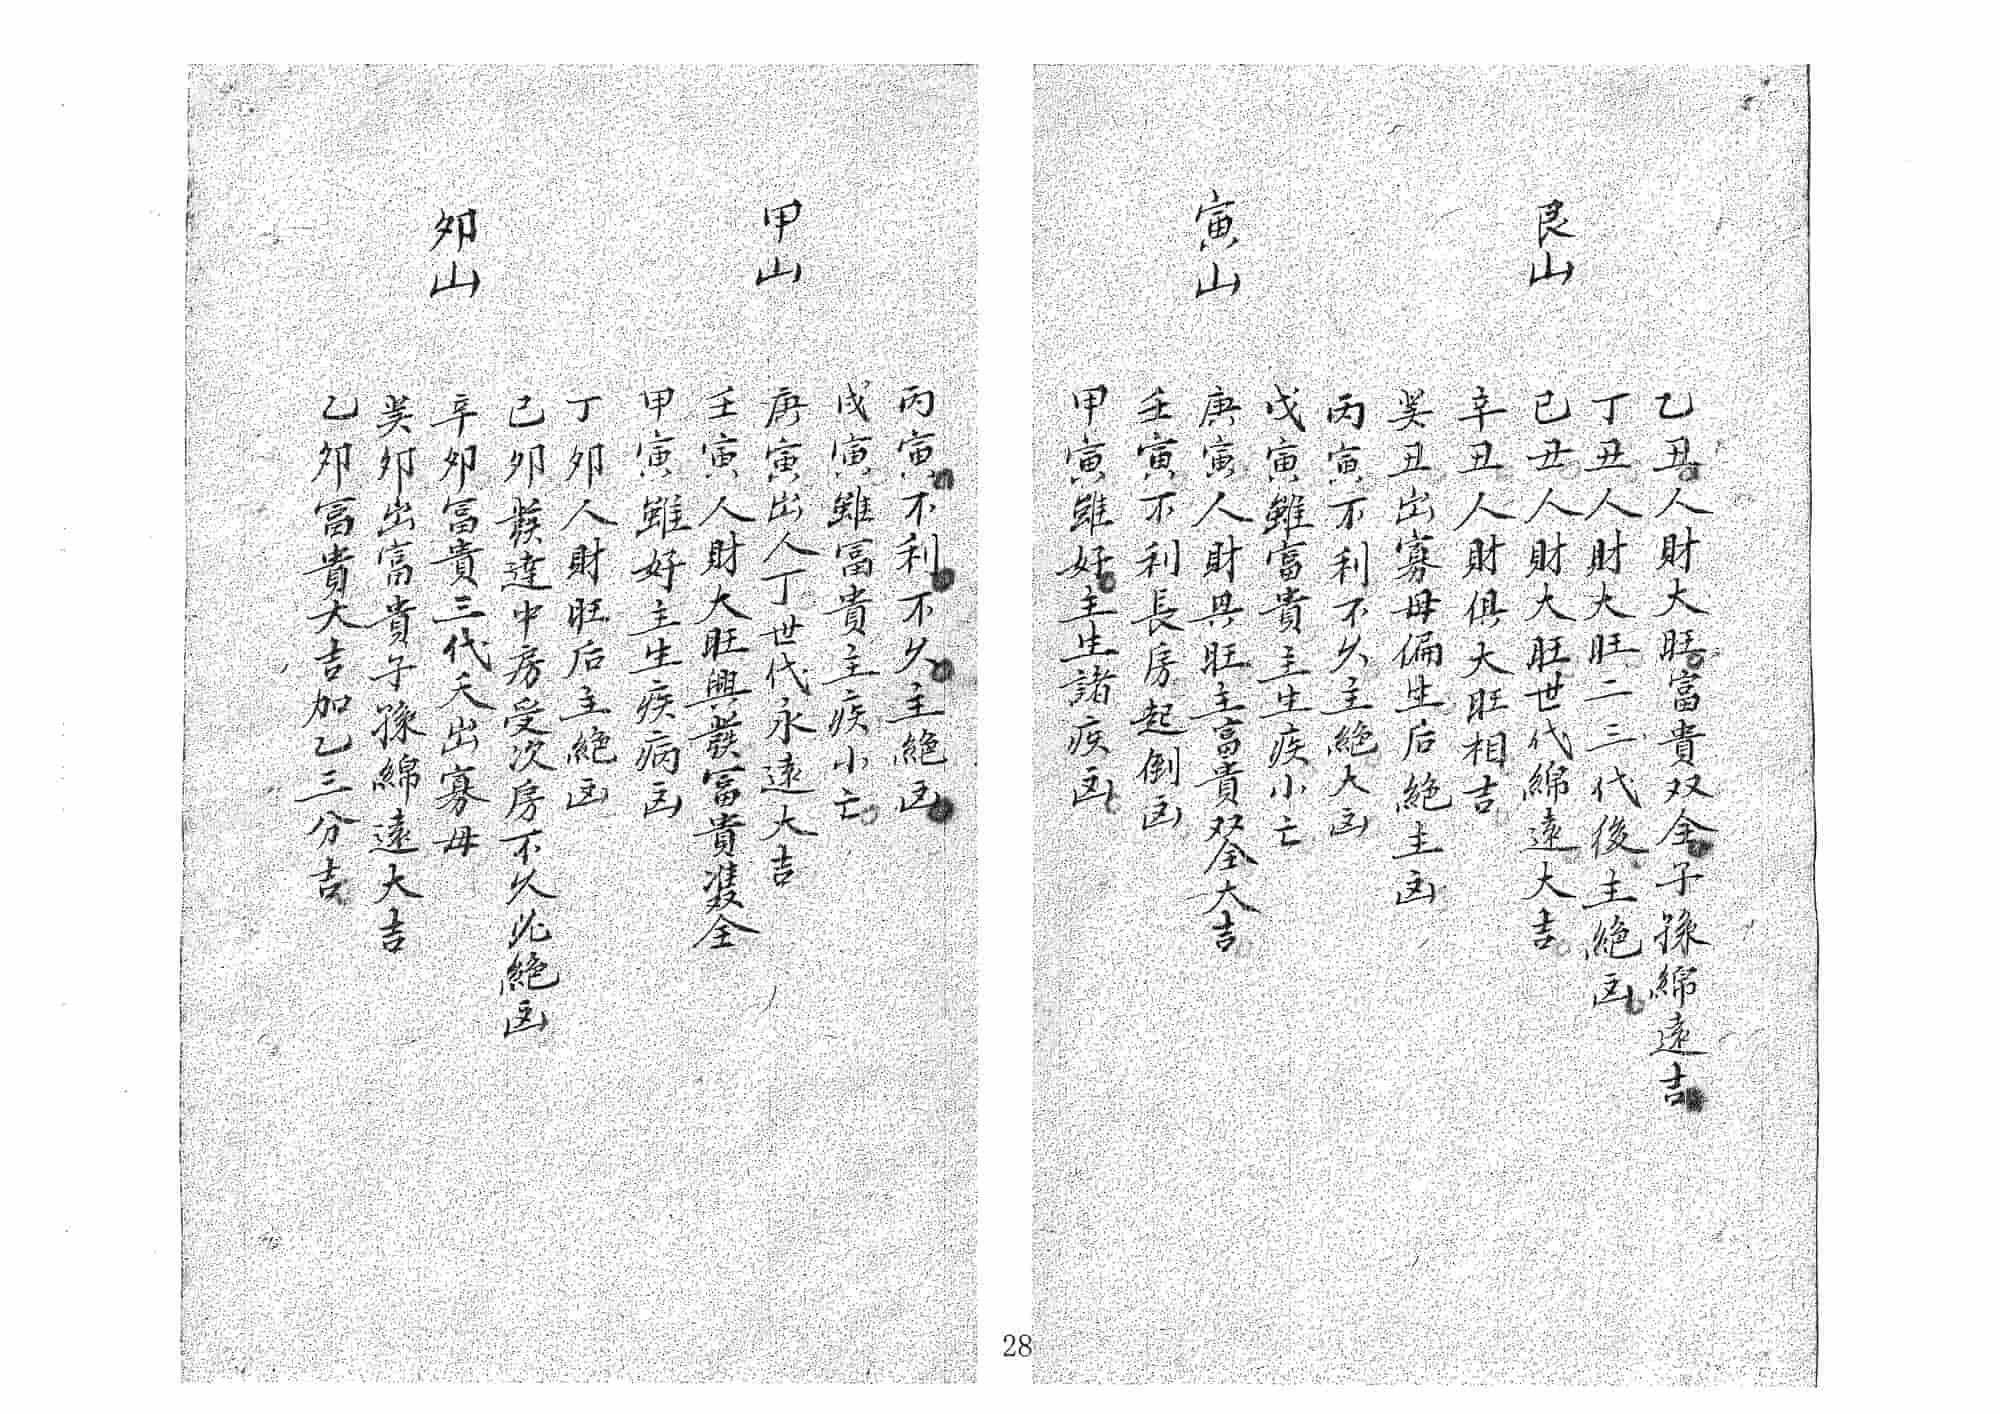 艮山
乙丑人財大旺富貴双全子孫綿遠吉
丁丑人財大旺二三代後主絶凶
己丑人財大旺世代綿遠大吉
辛丑人財俱大旺相吉
癸丑出寡母偏生后絶主凶
寅山
丙寅不利不久主絶大凶
戊寅雖富貴主生疾小亡
庚寅人財具旺主富貴双全大吉
壬寅不利長房起倒凶
甲寅雖好主生諸疾凶
甲山
丙寅不利不久主絶凶
戊寅雖冨貴主疾小亡
庚寅出人丁世代永遠大吉
壬寅人財大旺興發冨貴雙全
甲寅雖好主生疾病凶
卯山
丁卯人財旺后主絶凶
己卯發達中房受次房不久必絶凶
辛卯冨貴三代夭出寡母
癸卯出富貴子孫綿遠大吉
乙卯冨貴大吉加乙三分吉
28